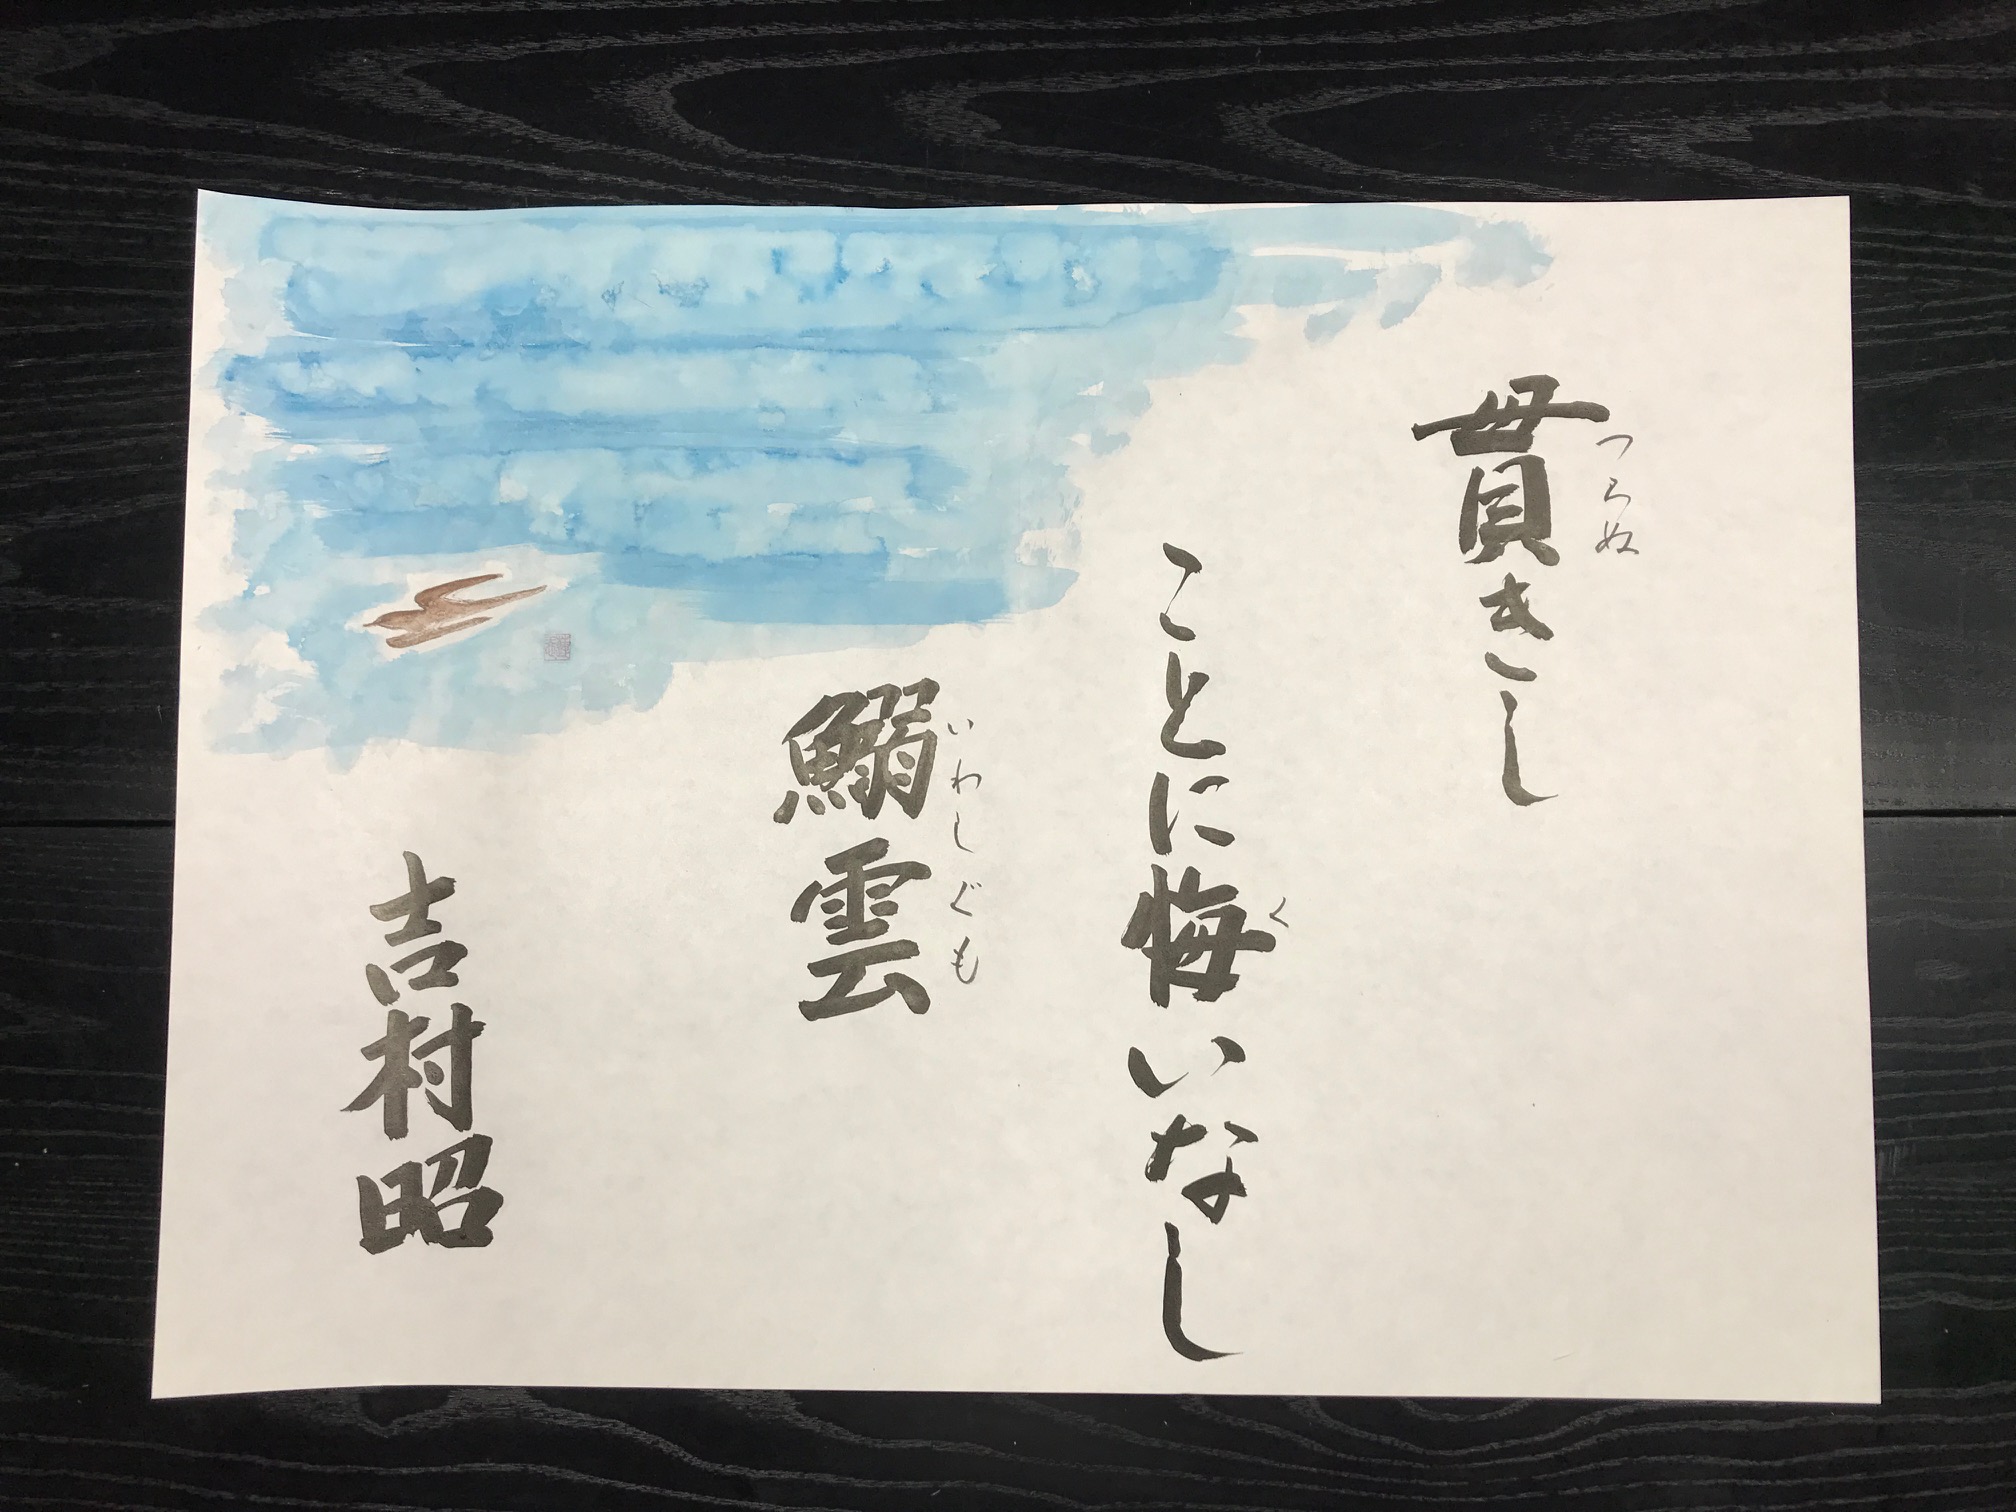 貫きし
つらぬ
ことに悔いなし
く
鰯雲
いわしぐも
吉村昭